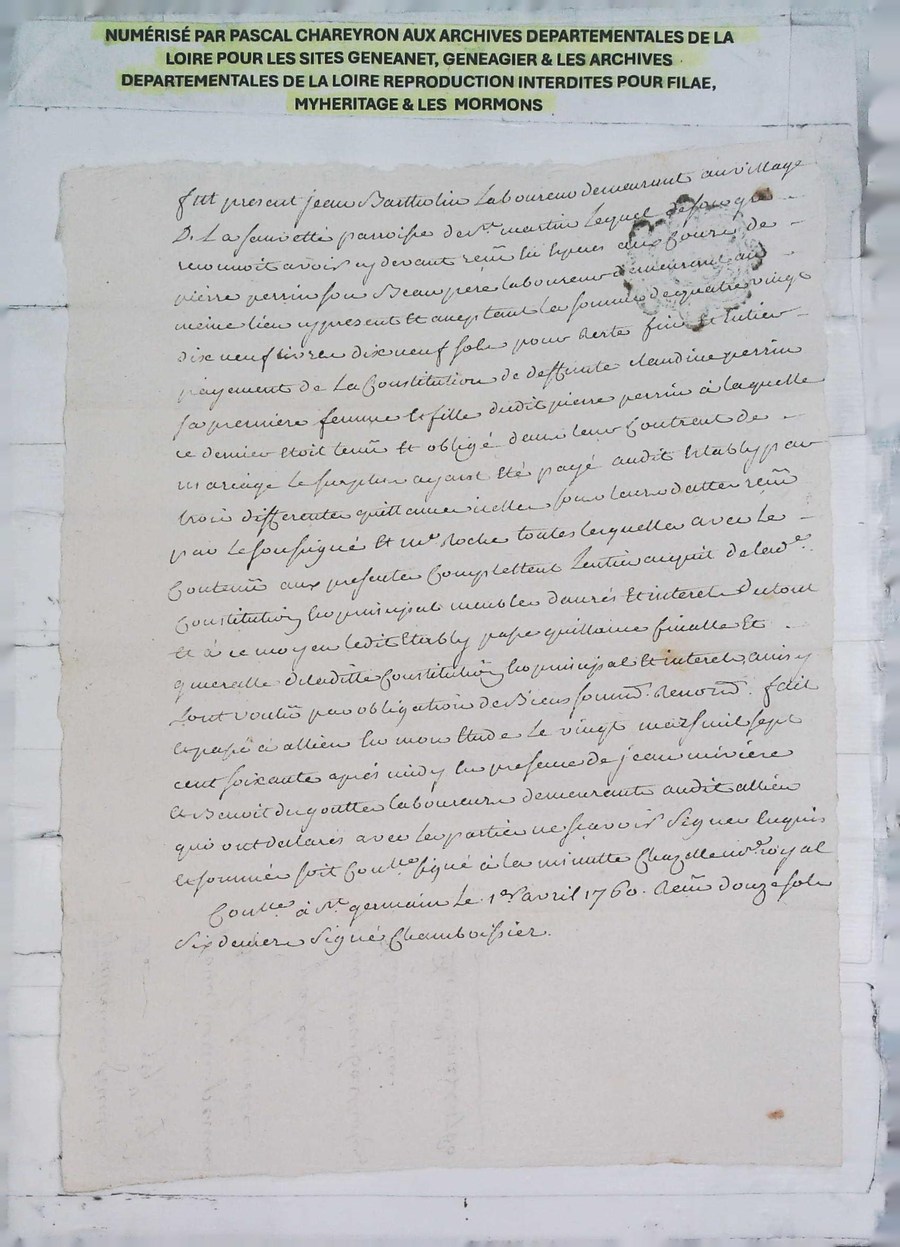 NUMÉRISÉ PAR PASCAL CHAREYRON AUX ARCHIVES DEPARTEMENTALES DE LA
LOIRE POUR LES SITES GENEANET, GENEAGIER & LES ARCHIVES
DEPARTEMENTALES DE LA LOIRE REPRODUCTION INTERDITES POUR FILAE,
MYHERITAGE & LES MORMONS
fut present jean Bartholin Laboureur demeurant au village
De La parroisse de St martin Lequel de son gré
reconnoit avoir cy devant reçu en especes au cours de
pierre perrin son Beaupere laboureur demeurant au
meme lieu cy present et aceptant la somme de quatre vingt
dix neuf livres dix neuf sols pour reste fin et Entier
payement de La Constitution de deffunte claudine perrin
sa premiere femme et fille dudit pierre perrin à laquelle
ce dernier etoit tenu et obligé dans leur Contrat de
mariage Le surplus ayant eté payé audit Etably par
trois differentes quittances icelles sous leurs dattes reçu
par Le soussigné Et me Roche toutes lesquelles avec Le
Contenu aux presentes Complettent Lentier acquit de lade
Constitution en principal meubles danrés Et interets Du tout
Et à ce moyen ledit Etably passe quittance finalle Et
generalle de laditte Constitution en principal Et interets ainsy
Lont voulu par obligation de Biens soumd. Renond. fait
et passé à allieu en mon Etude Le vingt mars mil sept
cent soixante aprés midy en presence de jean
et Benoit dugoutte laboureurs demeurants audit allieu
qui ont declarés avec les parties ne scavoir Signer Enquis
et sommés soit Conlle signé à la minutte Chazelle nre royal
Conlle à St germain Le 1er avril 1760. Reçu douze sols
Six deniers Signé Chamboissier.